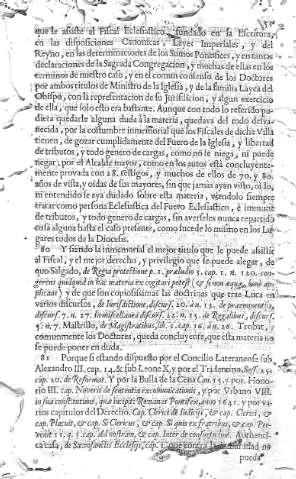 que le assiste al Fiscal Eclesiastico, fundado en la Escritura,
en las disposiciones Canonicas, Leyes Imperiales, y del
Reyno, en las determinaciones de los Sumos Pontifices, y en tantas
declaraciones de la Sagrada Congregacion, y muchas de ellas en los
terminos de nuestro caso, y en el comun consenso de los Doctores
por ambos titulos de Ministro de la Iglesia, y de la familia Layca del
Obispo, con la representacion de su Jurisdicion, y algun exercicio
de ella, que solo esto era bastante. Aunque con todo lo referido pu-
diera quedarle alguna duda à la materia, quedava del todo desva-
necida, por la costumbre inmemorial que los Fiscales de dicha Villa
tienen, de gozar cumplidamente del Fuero de la Iglesia, y libertad
de tributos, y todo genero de cargas, como no le niega, ni puede
negar, por el Alcalde mayor, como en los autos està concluyente-
mente provada con 28. testigos, y muchos de ellos de 70. y 80.
años de villa, y oidas de sus mayores, sin que jamas ayan visto, oido,
ni entendido se aya dudado sobre esta materia, viendolo siempre
tratar como persona Eclesiastica del Fuero Eclesiastico, è immune
de tributos, y todo genero de cargas, sin averseles nunca repartido
cosa alguna hasta el caso presente, como sucede lo mismo en los Lu-
gares todos de la Diocesi.
80 Y siendo la inmemorial el mejor titulo que le puede assistir
al Fiscal, y el mejor derecho, y privilegio que se puede alegar, de
quo Salgado, de Regia protectione p. 1. præludio 3. cap. 1. n. 120. con-
gerens quidquid in hac materia ex cogitari potest (& sic non aqui
plicar) y de que son copiosissimas las doctrinas que trae Luca en
varios discursos, de Iurisdictione, discurs. 20. n. 13. de præeminentijs,
discurs. 7. n. 27. discurs. 22. n. 15. de Regalibus, discurs.
5. n. 7. Mastrillo, de Magistratibus, lib. 5. cap. 16. n. 26. Trobat, y
comunmente los Doctores, queda concluyente, que esta materia no
se puede poner en duda.
81 Porque si estando dispuesto por el Concilio Lateranense sub
Alexandro III. cap. 14. & sub Leone X. y por el Tridentino, Sess. 25.
cap. 20. de Reformat. Y por la Bulla de la Cena Can. 15. y por Hono-
rio III. cap. Noverit de sententia excommunicationis, y por Urbano VIII.
in sua constitutione, quæ incipit Romanus Pontifex, anno 1641. y por va-
rios capitulos del Derecho. Cap. Clerici de Iudicijs, & cap. Clerici, &
cap. Placuit, & cap. Si Clericus, & cap. Si quis ex fratribus, & cap. Per-
venit 11. q. 1. cap. Ad nostram, & cap. Inter de consuetudine. Authenti-
ca cassa, de Sacrosanctis Ecclesijs, cap. 1. que contra la libertad no
puede